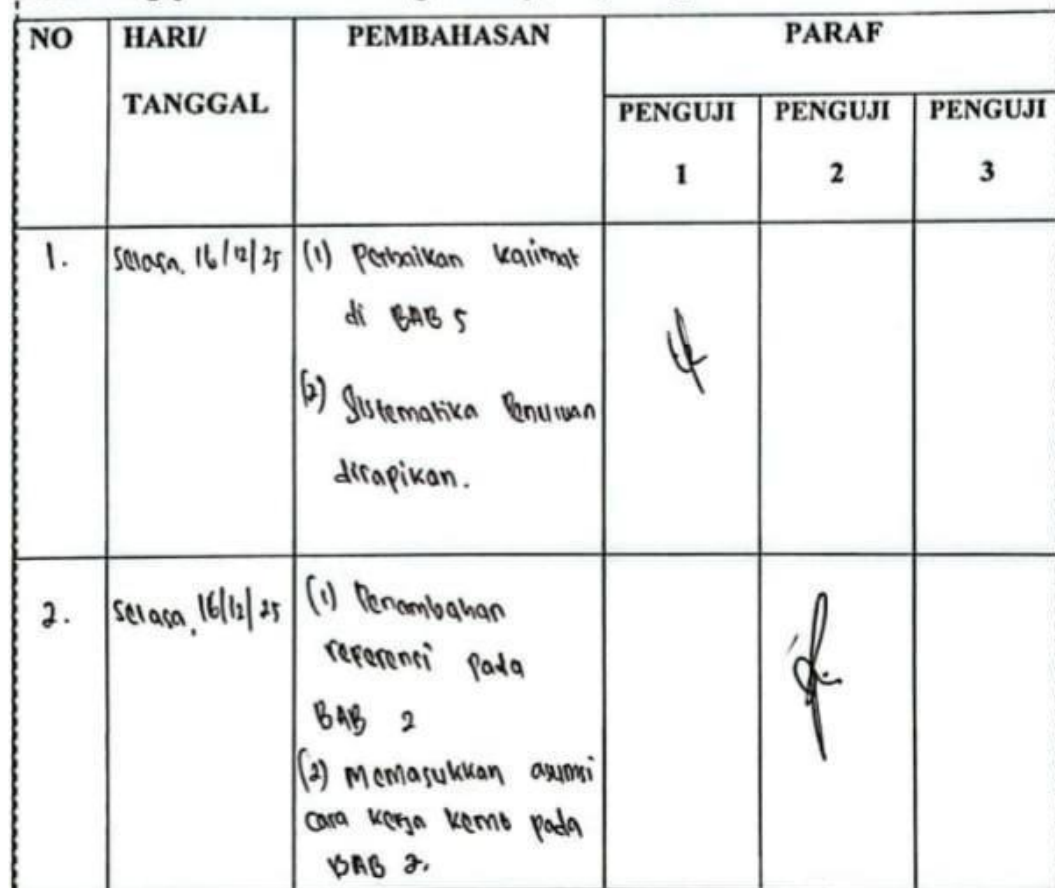 NO HARI/ PEMBAHASAN PARAF
TANGGAL
PENGUJI PENGUJI PENGUJI
1 2 3
1. Selasa, 16/12/25 (1) Perbaikan kalimat
di BAB 5
(2) Sistematika Penulisan
dirapikan.
2. Selasa, 16/12/25 (1) Penambahan
referensi pada
BAB 2
(2) Memasukkan asumsi
cara kerja pada
BAB 2.